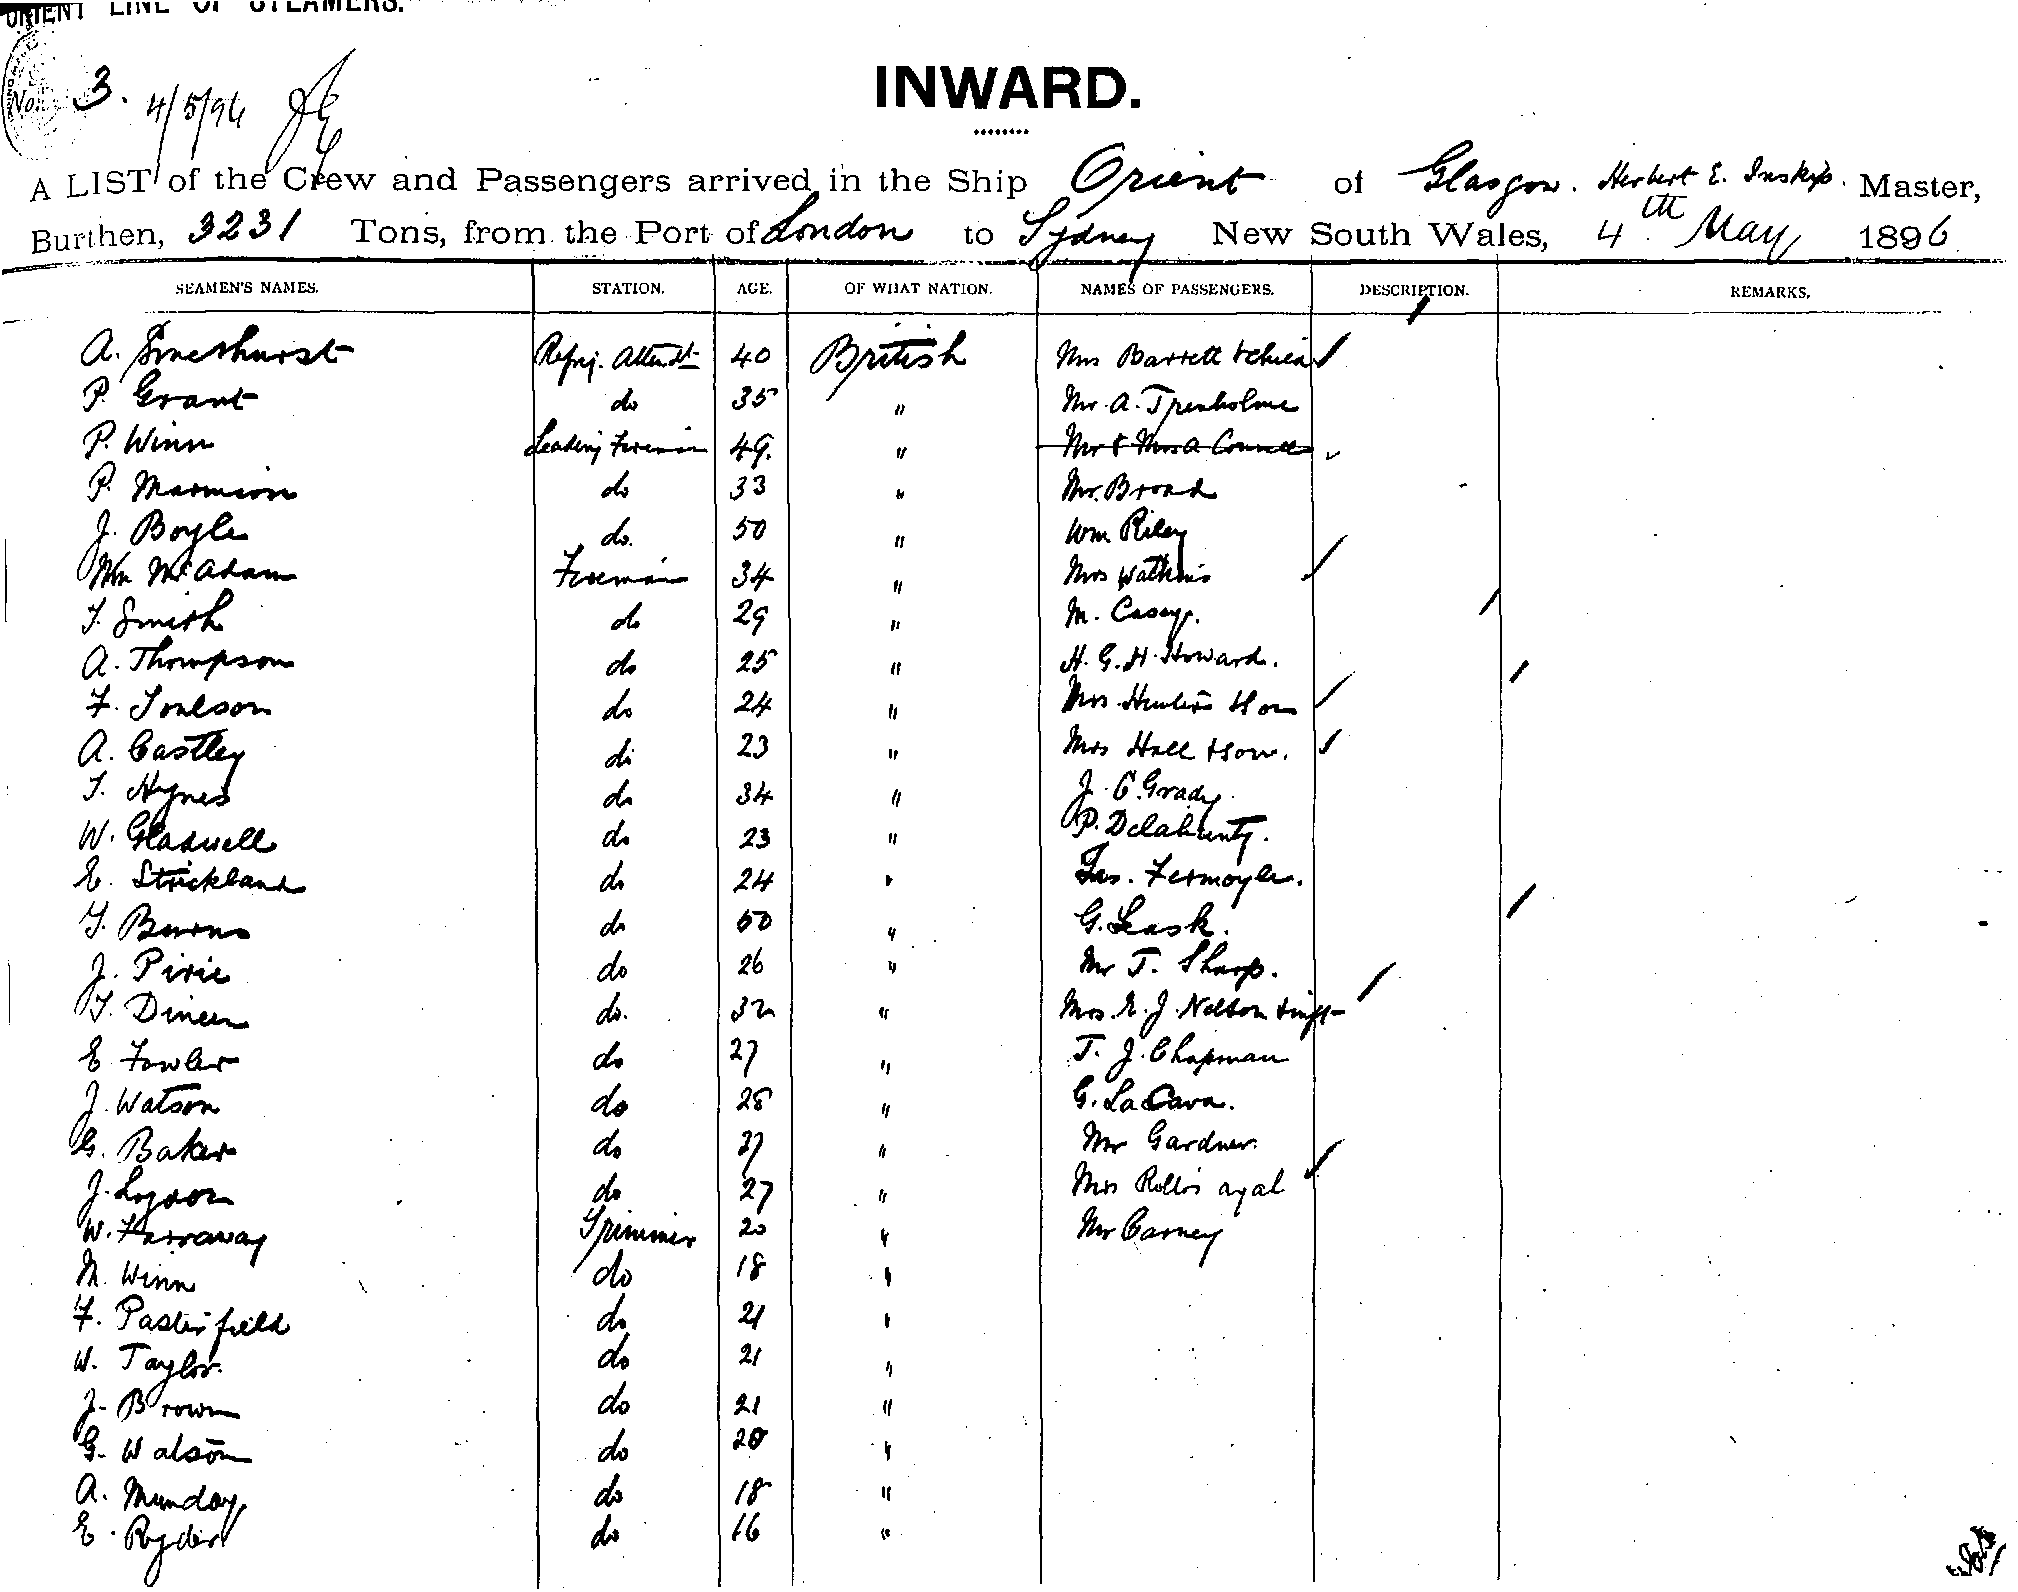 ORIENT LINE OF STEAMERS.
No. 3. 4/5/96
INWARD.
A LIST of the Crew and Passengers arrived in the Ship Orient of Glasgow. Herbert E. Inskip. Master,
Burthen, 3231 Tons, from the Port of London to Sydney New South Wales, 4th May 1896
SEAMEN'S NAMES. STATION. AGE. OF WHAT NATION. NAMES OF PASSENGERS. DESCRIPTION. REMARKS.
A. Smethurst Refrig. Attendt 40 British Mrs Barrett &
P. Grant do 35 " Mr. A. Trenholme
P. Winn Leading Fireman 49. " Mr & Mrs A
P. Marmion do 33 " Mr. Broad
J. Boyle do. 50 " Wm Riley
Wm McAdam Fireman 34 " Mrs Watkins
T. Smith do 29 " M. Casey.
A. Thompson do 25 " H. G. H. Howard.
F. Toulson do 24 " Mrs & son
A. Castley do 23 " Mrs Hall & son.
T. Hynes do 34 " J. O'Grady
W. Gladwell do 23 " P. Delahunty.
E. Strickland do 24 " Jas. Fermoyle.
T. Burns do 50 " G. Leask.
J. Pirie do 26 " Mr T. Sharp.
T. Dineen do. 32 " Mrs. E. J. Nelson & inft
E Fowler do 27 " T. J. Chapman
J. Watson do 28 " G. La Cava.
G. Baker do 27 " Mr Gardner.
J. do 27 " Mrs
W. Farraway Trimmer 20 " Mr Carney
M. Winn do 18 "
F. Pasterfield do 21 "
W. Taylor. do 21 "
J. Brown do 21 "
G. Watson do 20 "
A. Munday do 18 "
E. Ryder do 16 "